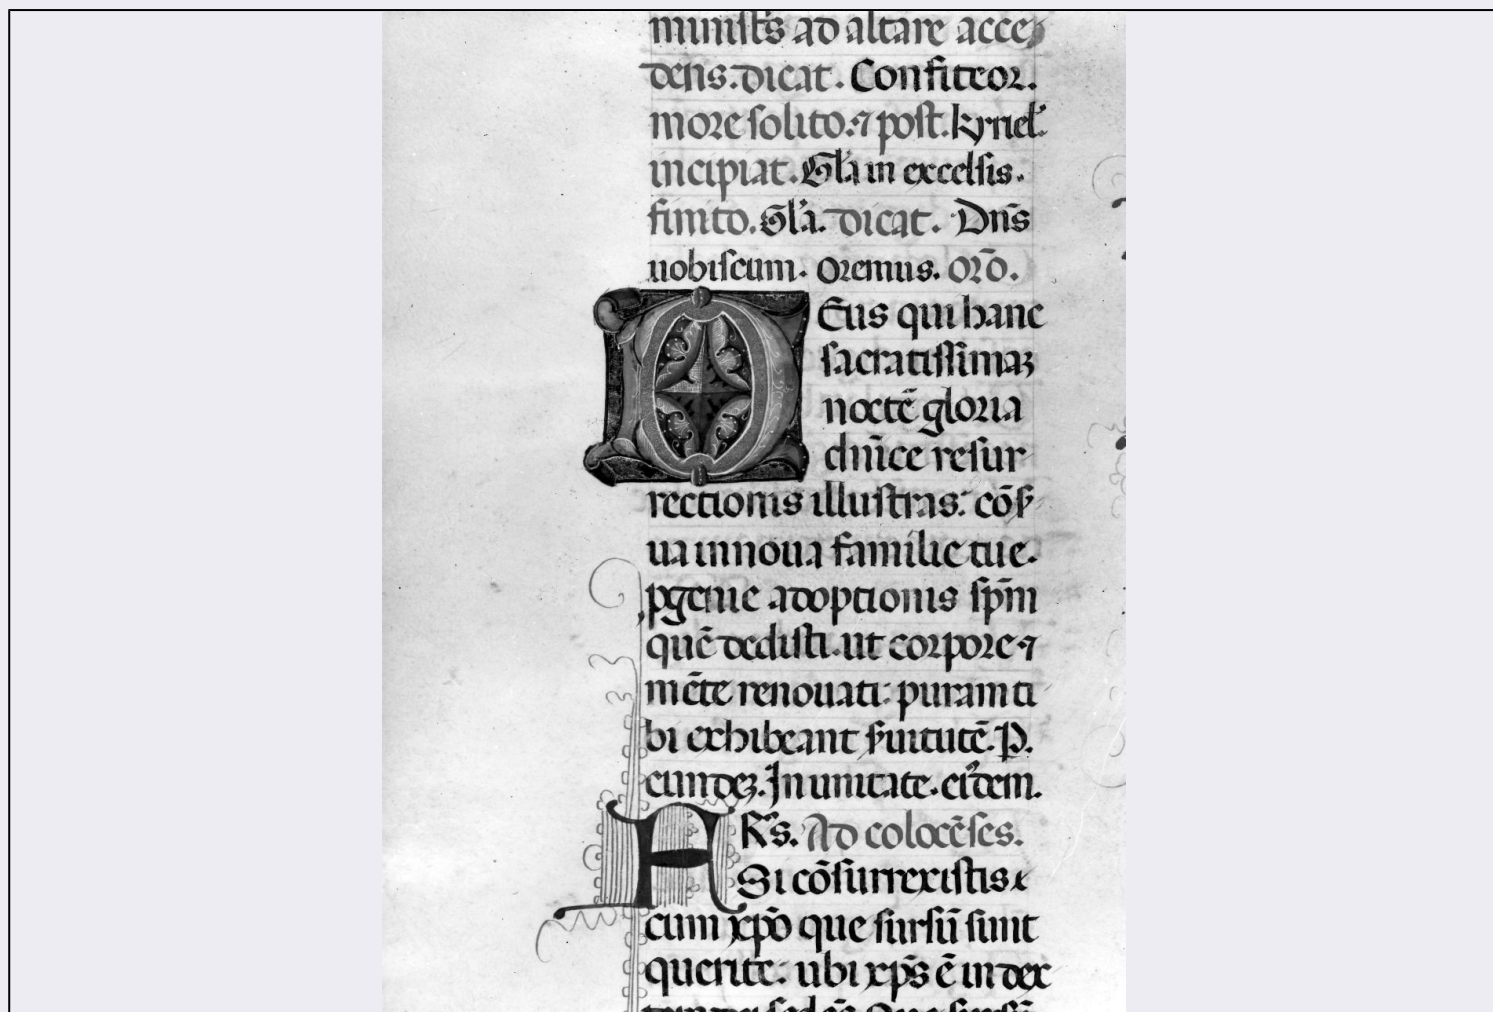 ministˢ ad altare acce
dens. dicat. Confiteor.
more solito. ⁊ post. kyriel.
incipiat. Gl̄a in excelsis.
finito. Gl̄a. dicat. Dn̄s
uobiscum. Oremus. Orō.
DEus qui hanc
sacratissimaꝫ
noctē gloria
dn̄ice resur
rectionis illustras: cōẜ
ua in noua familie tue.
ꝓgenie adoptionis sp̄m
quē dedisti. ut corpore ⁊
mēte renouati: puram ti
bi exhibeant ẜuitutē. P.
eundeꝫ. In unitate. eiᵈdem.
Ad colocēses.
FRˢ. Si cōsurrexistis
cum xp̄o que sursū sunt
querite: ubi xp̄s ē in dex